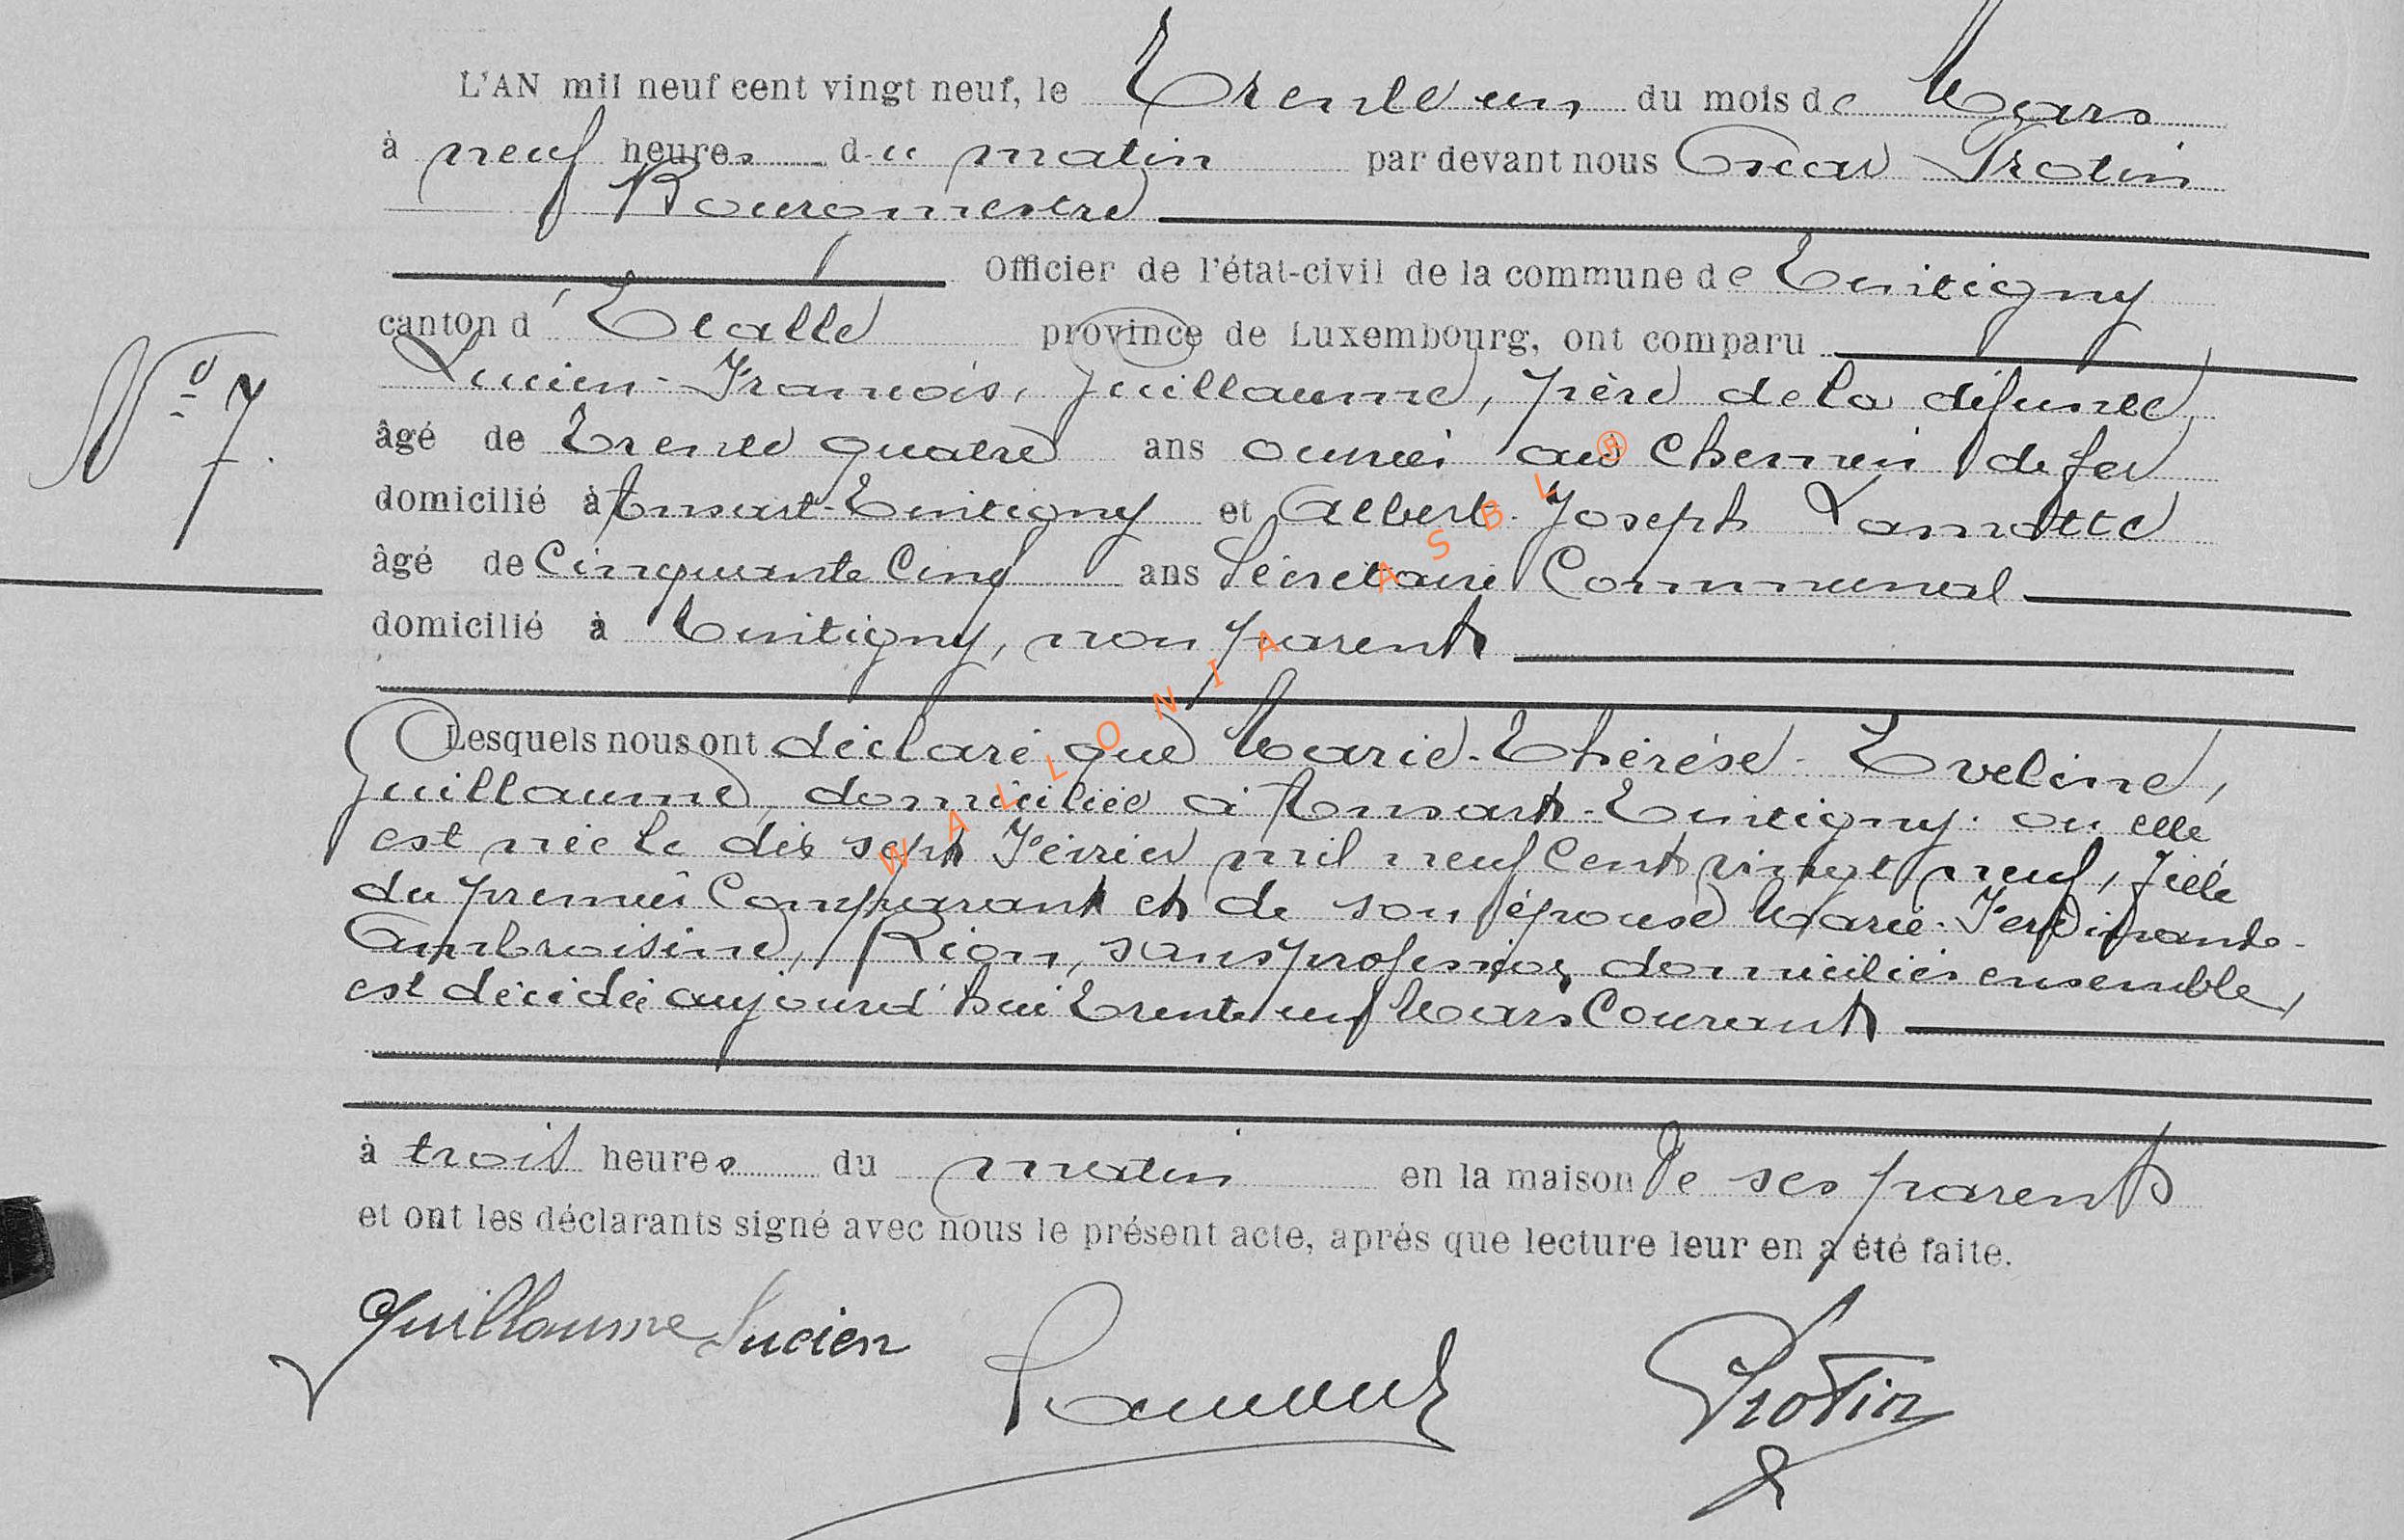 L'AN mil neuf cent vingt neuf, le Trente un du mois de Mars
à neuf heures du matin par devant nous Oscar Protin
Bourgmestre
Officier de l'état-civil de la commune de Tintigny
canton d'Etalle province de Luxembourg, ont comparu
N° 7.
Lucien-François, Guillaume, père de la défunte,
âgé de trente quatre ans ouvrier au chemin de fer
domicilié à Ansart-Tintigny et Albert-Joseph Lamotte
âgé de Cinquante Cinq ans Secrétaire Communal
domicilié à Tintigny, non parent
Lesquels nous ont déclaré que Marie-Thérèse-Eveline,
Guillaume, domiciliée à Ansart-Tintigny. où elle
est née le dix sept Février mil neuf Cent vingt neuf, fille
du premier Comparant et de son épouse Marie-Ferdinande-
Ambroisine, Rion, sans profession, domiciliés ensemble,
est décédée aujourd'hui trente un Mars Courant
à trois heures du matin en la maison de ses parents
et ont les déclarants signé avec nous le présent acte, après que lecture leur en a été faite.
Guillaume Lucien
Protin
WALLONIA ASBL ®